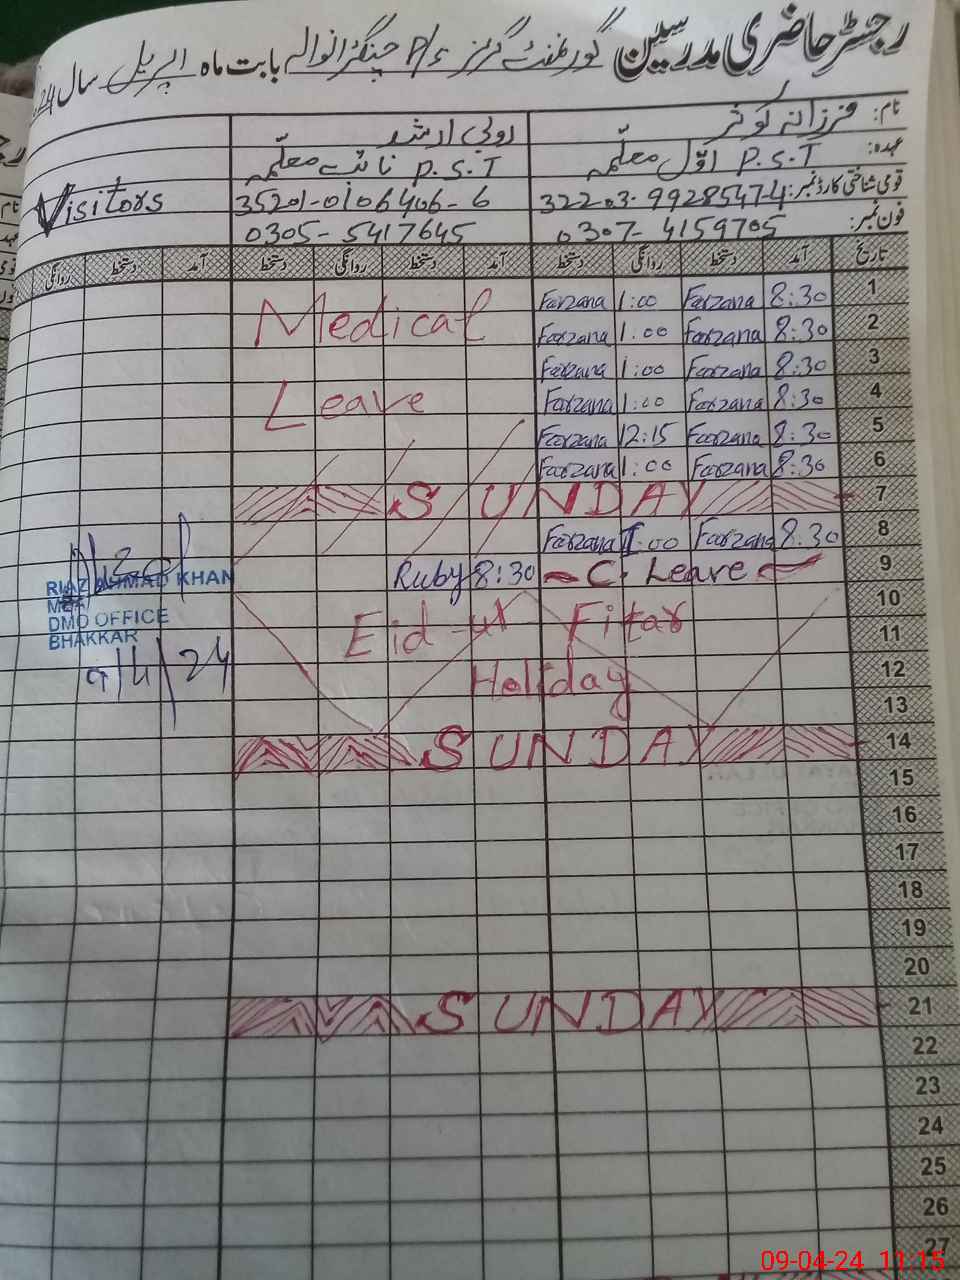 رجسٹر حاضری مدرسین گورنمنٹ گرلز P/S چھینگڑانوالہ بابت ماہ اپریل سال 24
نام: فرزانہ کوثر روبی ارشد
عہدہ: P.S.T اوّل معلّمہ P.S.T نائب معلّمہ Visitors
قومی شناختی کارڈ نمبر: 32203-9928547-4 35201-0106406-6
فون نمبر: 0307-4159705 0305-5417645
تاریخ آمد دستخط روانگی دستخط آمد دستخط روانگی دستخط آمد دستخط روانگی
1 8:30 Farzana 1:00 Farzana Medical
2 8:30 Farzana 1:00 Farzana
3 8:30 Farzana 1:00 Farzana
4 8:30 Farzana 1:00 Farzana Leave
5 8:30 Farzana 12:15 Farzana
6 8:30 Farzana 1:00 Farzana
7 SUNDAY
8 8:30 Farzana 1:00 Farzana
9 C. Leave 8:30 Ruby
RIAZ AHMAD KHAN
MEA
DMO OFFICE
BHAKKAR
9/4/24
10
11 Eid-ut Fitar
12 Holiday
13
14 SUNDAY
15
16
17
18
19
20
21 SUNDAY
22
23
24
25
26
27
09-04-24 11:15